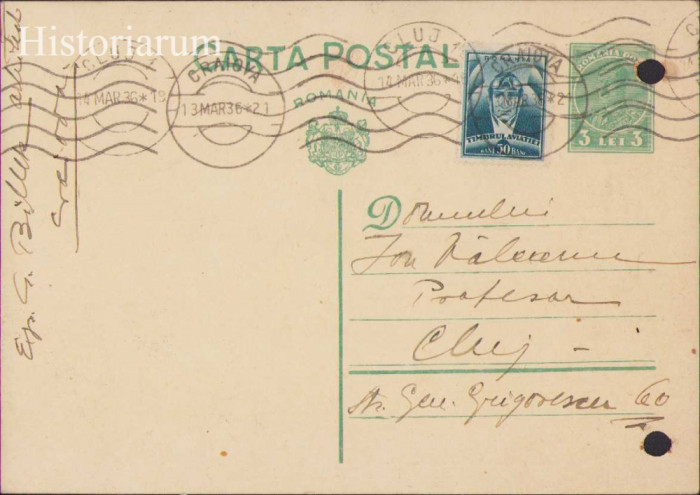 Historiarum
CARTA POSTALA
CLUJ 1
14 MAR 36 * 18
CRAIOVA
13 MAR 36 * 21
CLUJ 1
14 MAR 36 * 18
CRAIOVA
ROMANIA
TIMBRUL AVIATIEI
BANI 50 BANI
ROMANIA
3 LEI 3
Domnului
Ion
Profesor
Cluj –
Str. Gen. Grigorescu 60
Exp. G.